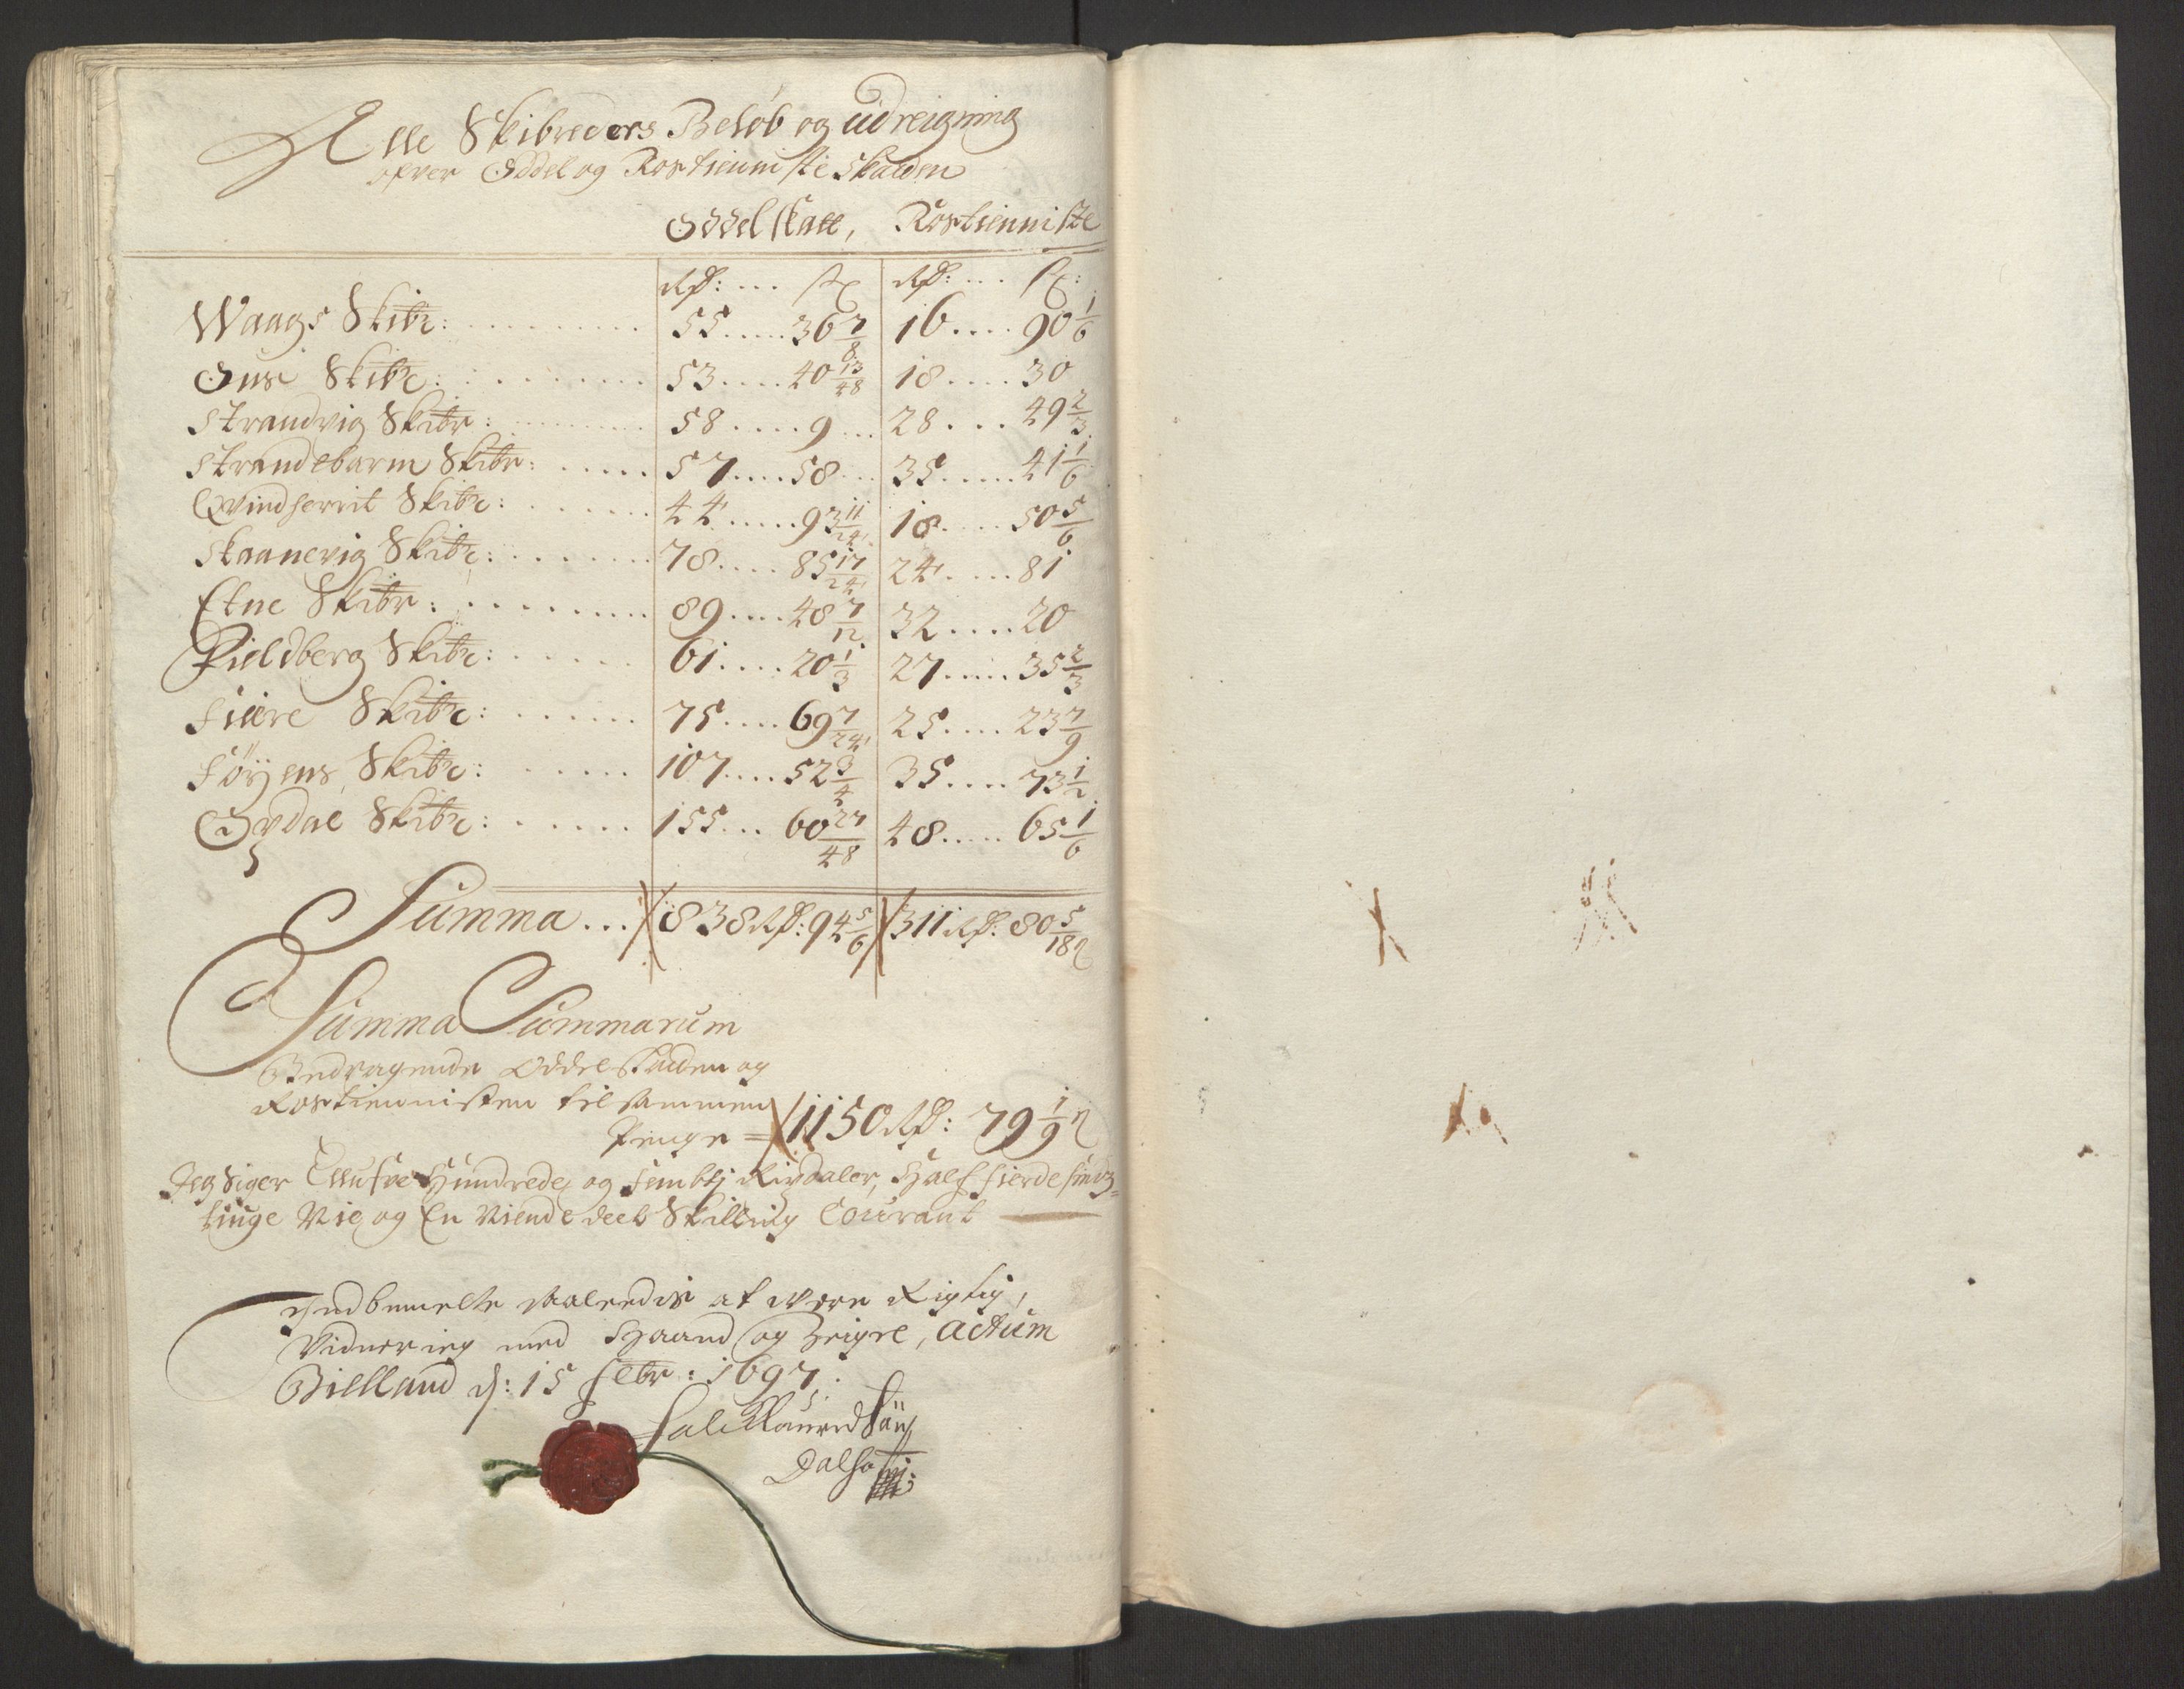 Alle Skibreders Beløb og udreigning
ofver Oddel og Rostienniste Skatten
Oddel skatt, Rostienniste
Rdr: ... sk Rdr: ... sk:
Waags Skibr: 55 ..... 36 7/8 16 .... 90 1/6
Øus Skibr: 53 .... 40 13/48 18 .... 30
Strandvig Skibr: 58 ..... 9 ... 28 ... 49 2/3
Strandebarm Skibr: 57 .... 58 ... 35 ..... 41 1/6
Qvindherrit Skibr: 44 ..... 93 11/24 18 .... 50 5/6
Skaanevig Skibr: 78 .... 85 17/24 24 .... 81
Etne Skibr: 89 .... 48 7/12 32 .... 20
Fieldberg Skibr: 61 .... 20 1/3 27 .... 35 2/3
Fiere Skibr: 75 .... 69 7/24 25 .... 23 7/9
Føyens Skibr: 107 .... 52 3/4 35 .... 73 1/2
Opdal Skibr: 155 ... 60 27/48 48 .... 65 1/6
Summa ... 838 Rdr: 94 5/6 311 Rdr: 80 5/18 s
Summa Summarum
Bedragende Oddel Skatten og
Rostiennisten til sammen
Penge = 1150 Rdr: 79 1/9 s
Jeg Siger Ellufve Hundrede og fembtj Rixdaler, Half fierde sinds=
tiuge Nie og En Niende deel Skilling Courant
Indbemelte saaledis at være Rigtig,
Vidner ieg med Haand og Zeigre, Actum
Bielland d: 15 febr: 1697.